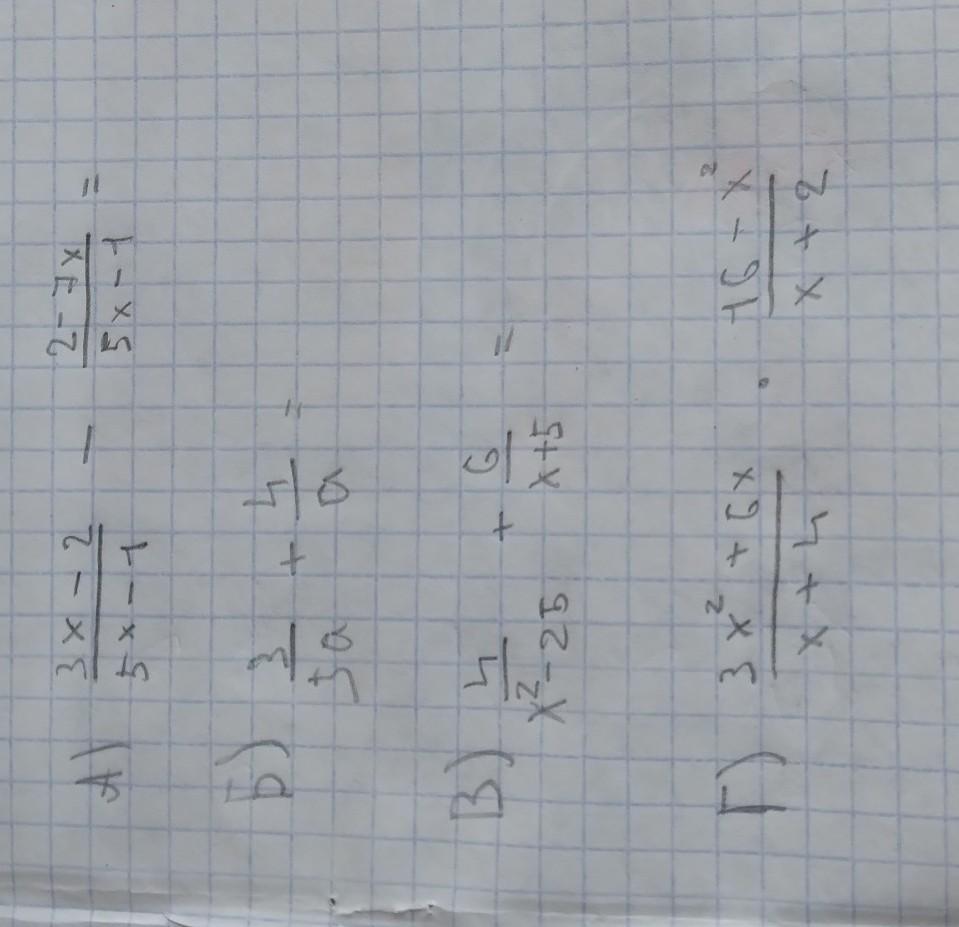 А) (3x - 2)/(5x - 1) - (2 - 7x)/(5x - 1) =
Б) 3/(5a) + 4/a =
В) 4/(x² - 25) + 6/(x+5) =
Г) (3x² + 6x)/(x + 4) · (16 - x²)/(x + 2)